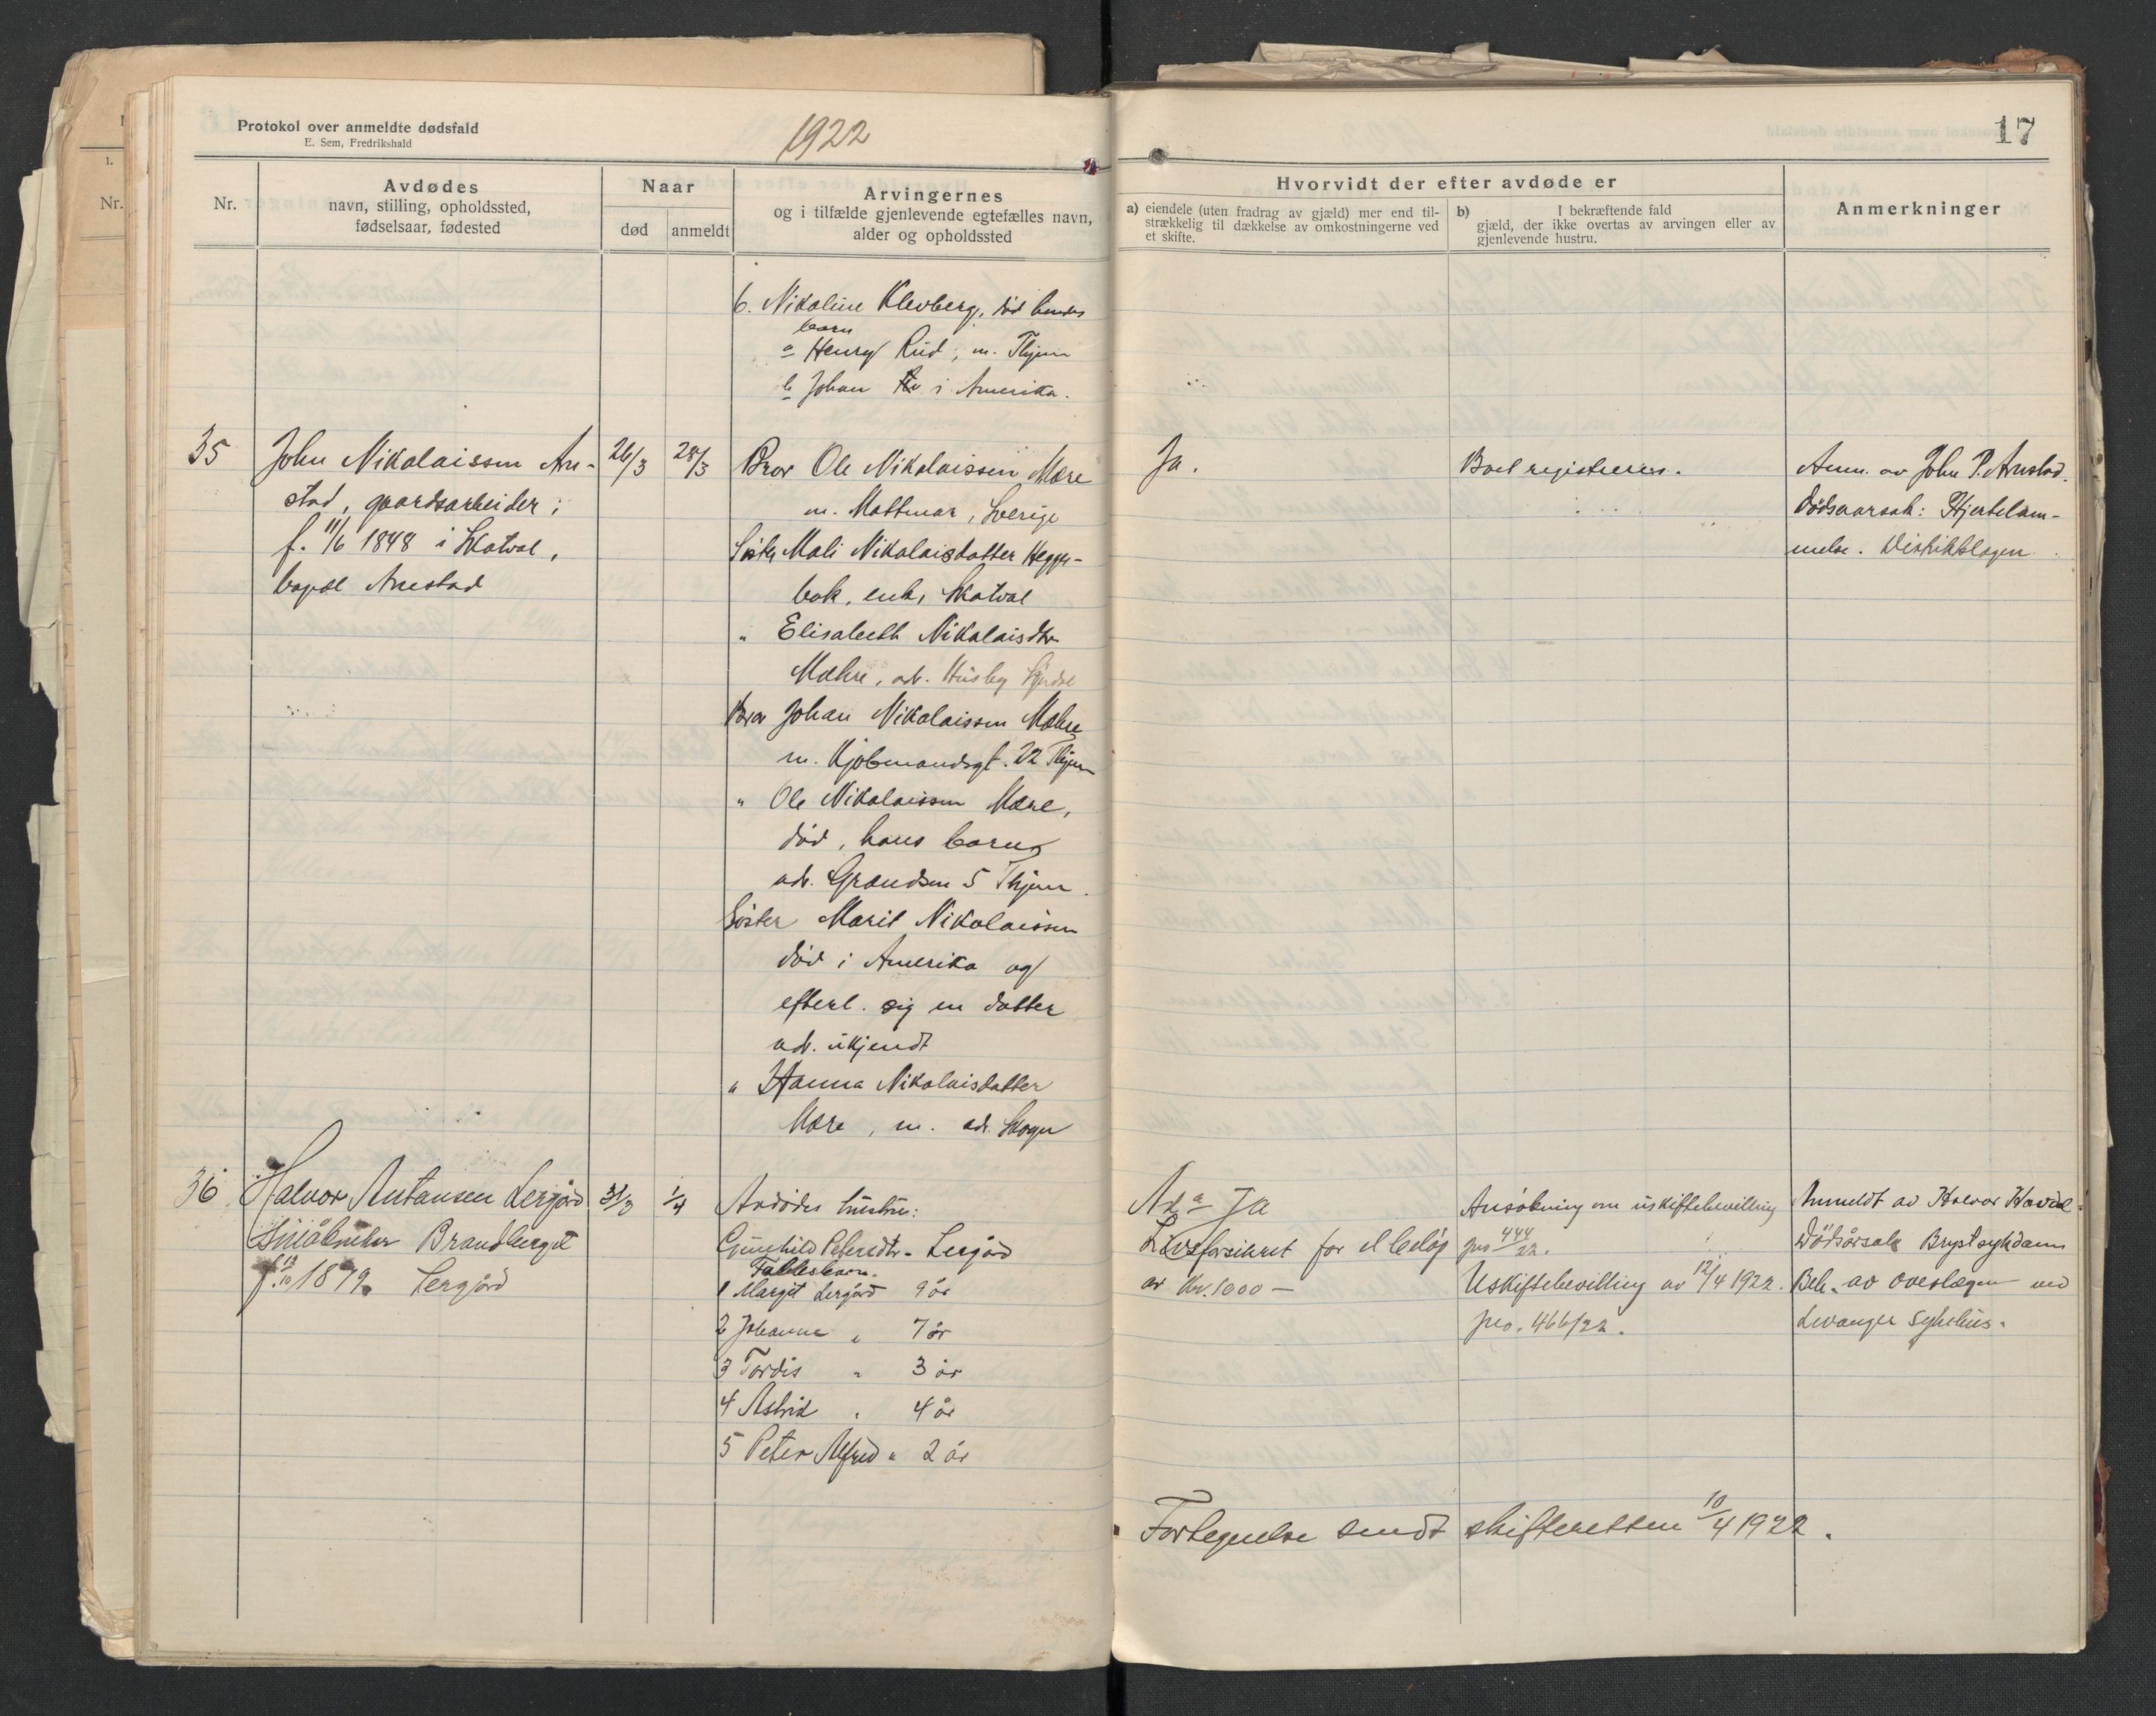 Protokol over anmeldte dødsfald
E. Sem, Fredrikshald
1922
17
Nr.
Avdødes
navn, stilling, opholdssted,
fødselsaar, fødested
Naar
død
anmeldt
Arvingernes
og i tilfælde gjenlevende egtefælles navn,
alder og opholdssted
Hvorvidt der efter avdøde er
a) eiendele (uten fradrag av gjæld) mer end til-
strækkelig til dækkelse av omkostningerne ved
et skifte.
b) I bekræftende fald
gjæld, der ikke overtas av arvingen eller av
gjenlevende hustru.
Anmerkninger
6. Nikoline Klevberg, död hendes
barn
a Henry Rud, m. Thjem
b Johan i Amerika.
35
John Nikolaissen Arn-
stad, gaardsarbeider;
f. 11/6 1848 i Skatval,
bopæl Arnstad
26/3
28/3
Bror Ole Nikolaissen Mære
m. Mattmar, Sverige
Søster Mali Nikolaisdatter Hegge-
bak, enke, Skatval
" Elisabeth Nikolaisdtr
Mæhre, adr. Husby Stjørdal
Bror Johan Nikolaissen Mæhre
m. Kjøbmandsgt. 22 Thjem
" Ole Nikolaissen Mære,
død, hans barn
adr. Grandsen 5 Thjem.
Søster Marit Nikolaissen
død i Amerika og
efterl. sig en datter
adr. ukjendt
" Hanna Nikolaisdatter
Mære, m. adr. Skogn
Ja.
Boet registreres.
Anm. av John P. Arnstad.
Dødsaarsak: Hjertelam-
melse. Distriktslægen
36
Halvor Antonsen Lergård
Småbruker Brandberget
f. 12/10 1879. Lergård
31/3
1/4
Avdødes hustru:
Gunhild Petersdtr. Lergård
Fællesbarn.
1 Margit Lergård 9 år
2 Johanne " 7 år
3 Tordis " 3 år
4 Astrid " 4 år
5 Peter Alfred " 2 år
Ad a Ja
Livsforsikret for et beløp
av Kr. 1000 —
Ansökning om uskiftebevilling
jno 444/22.
Uskiftebevilling av 12/4 1922.
jno. 466/22.
Anmeldt av Halvor Havdal.
Dødsårsak Brystsykdom
Bek. av overlægen ved
Levanger sykehus.
Fortegnelse sendt skifteretten 10/4 1922.